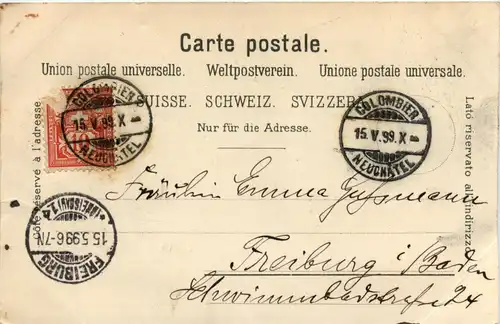 Carte postale.
Union postale universelle. Weltpostverein. Unione postale universale.
SUISSE. SCHWEIZ. SVIZZERA.
Nur für die Adresse.
Côté réservé à l'adresse.
Lato riservato all'indirizzo.
COLOMBIER
15.V.99.X
NEUCHÂTEL
COLOMBIER
15.V.99.X
NEUCHÂTEL
FREIBURG
15.5.99.6-7N
Fräulein Emma
Freiburg i/Baden
Schwimmbadstrasse 24